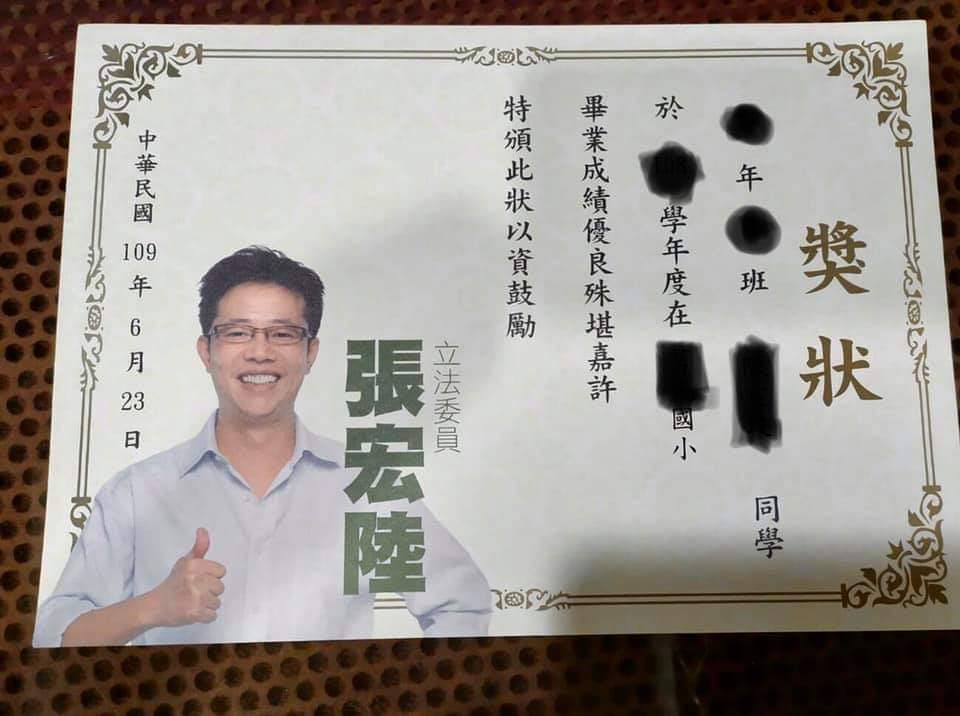 獎狀
年 班 同學
於 學年度在 國小
畢業成績優良殊堪嘉許
特頒此狀以資鼓勵
立法委員
張宏陸
中華民國109年6月23日